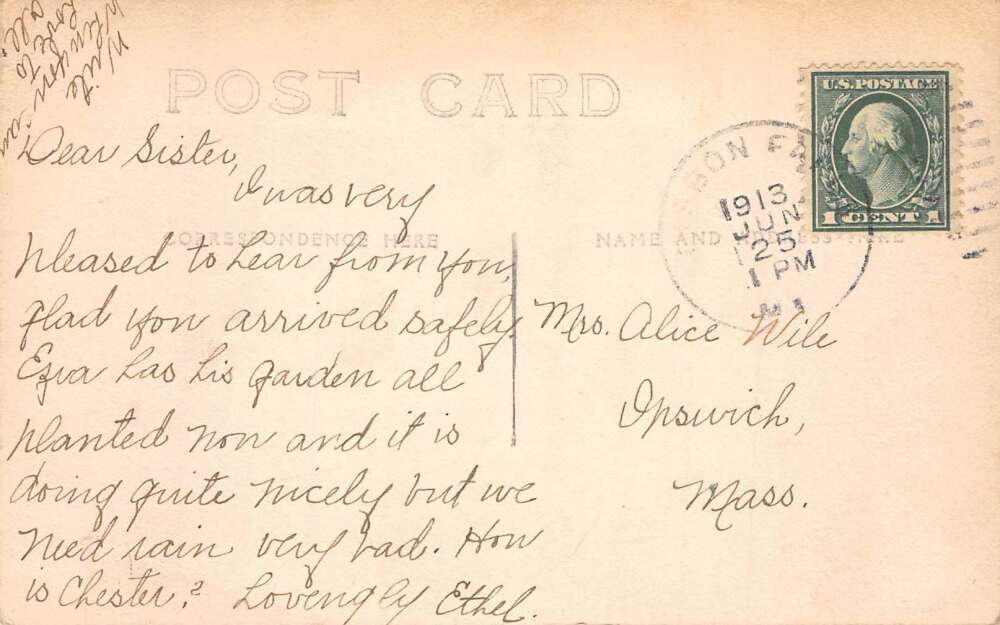 Write
when you can
Love to
all
POST CARD
U.S. POSTAGE
1 CENT 1
1913
JUN
25
1 PM
Dear Sister,
I was very
CORRESPONDENCE HERE
NAME AND ADDRESS HERE
pleased to hear from you,
glad you arrived safely.
Ezra has his garden all
planted now and it is
doing quite nicely but we
need rain very bad. How
is Chester? Lovengly Ethel.
Mrs. Alice Wile
Ipswich,
Mass.